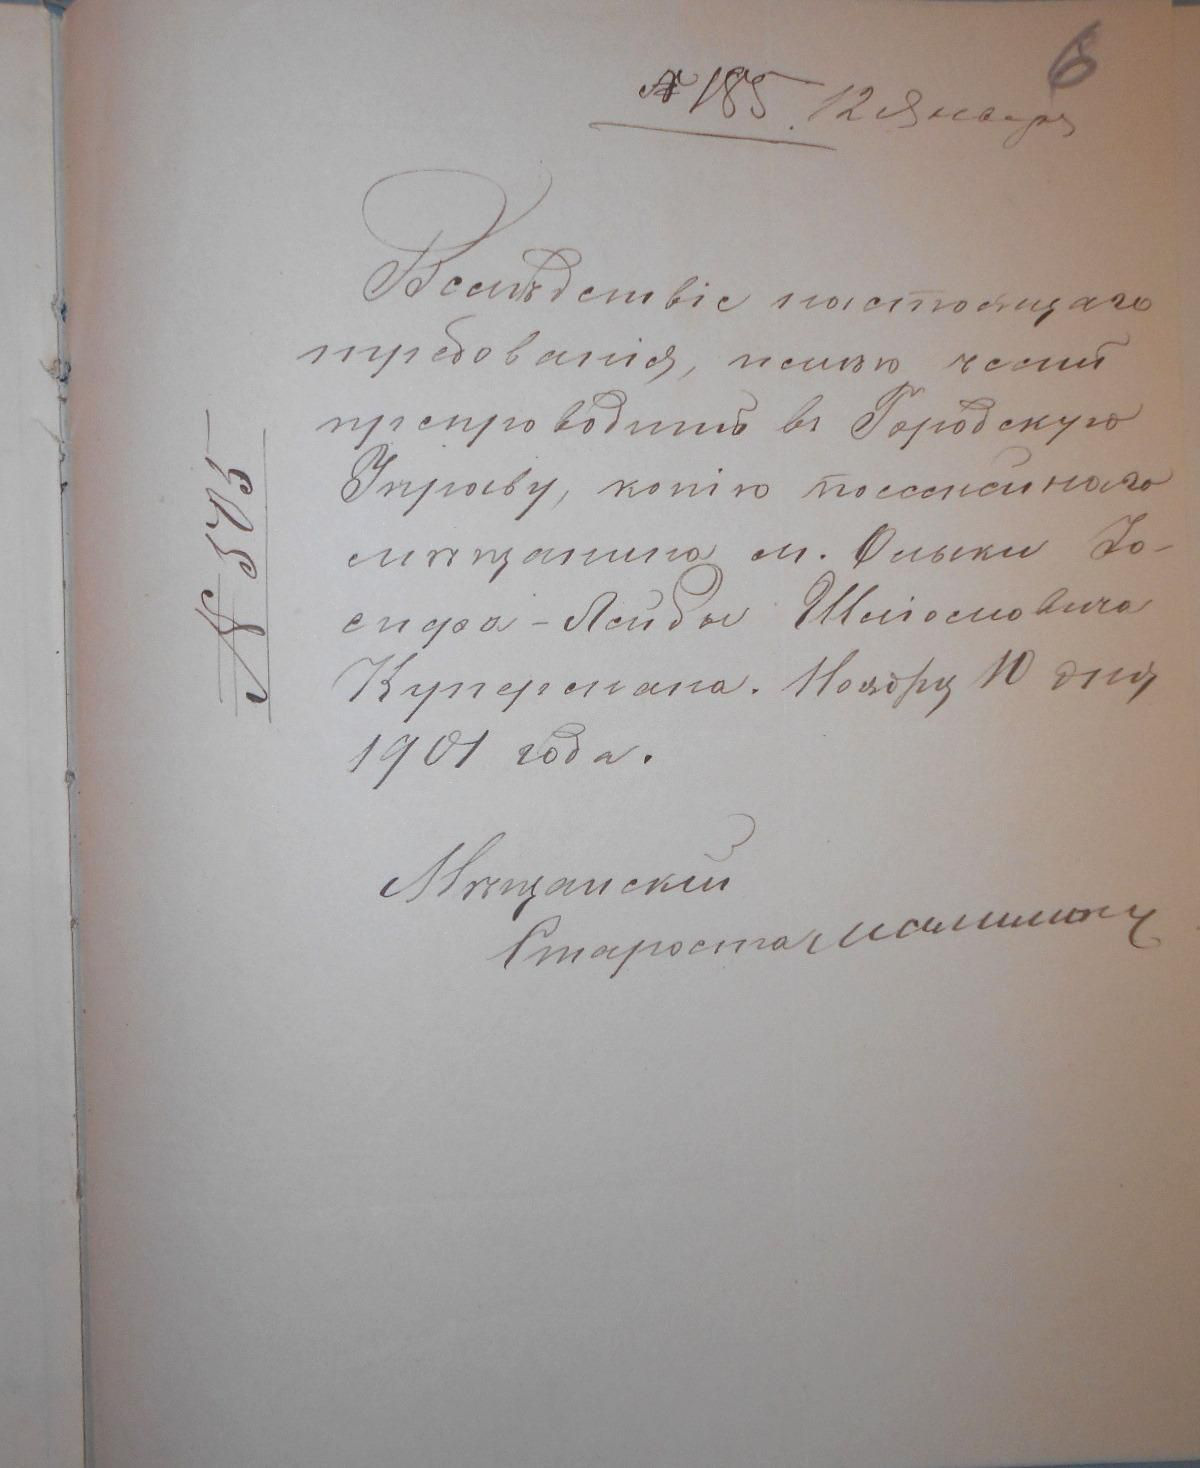 6
№ 185. 12 Января
Вслѣдствіе настоящаго
требованія, имѣю честь
препроводить въ Городскую
Управу, копію посемейнаго
мѣщанина м. Олыки Іо-
сифа-Лейбы
Купермана. Ноября 10 дня
1901 года.
Мѣщанскій
Староста
№ 505